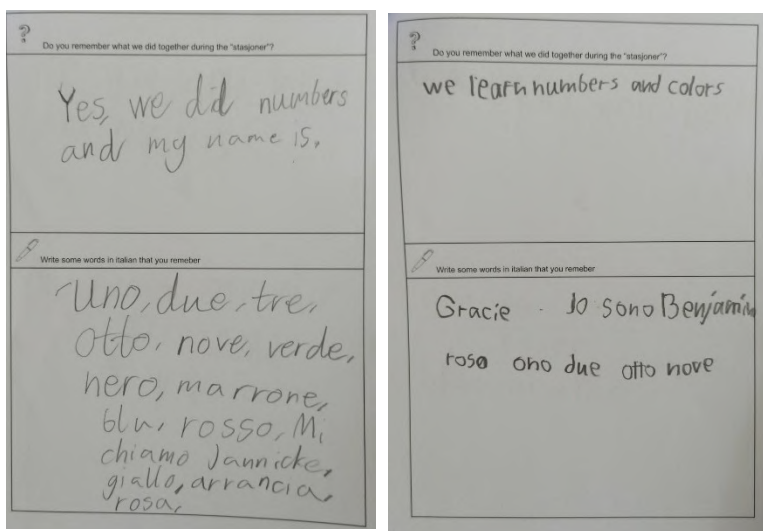 Do you remember what we did together during the "stasjoner"?
Yes, we did numbers
and my name is.
Write some words in italian that you remeber
Uno, due, tre,
otto, nove, verde,
nero, marrone,
blu, rosso, Mi
chiamo Jannicke,
giallo, arrancia,
rosa,
Do you remember what we did together during the "stasjoner"?
we learn numbers and colors
Write some words in italian that you remeber
Gracie . Jo sono Benjamin
rosa ono due otto nove